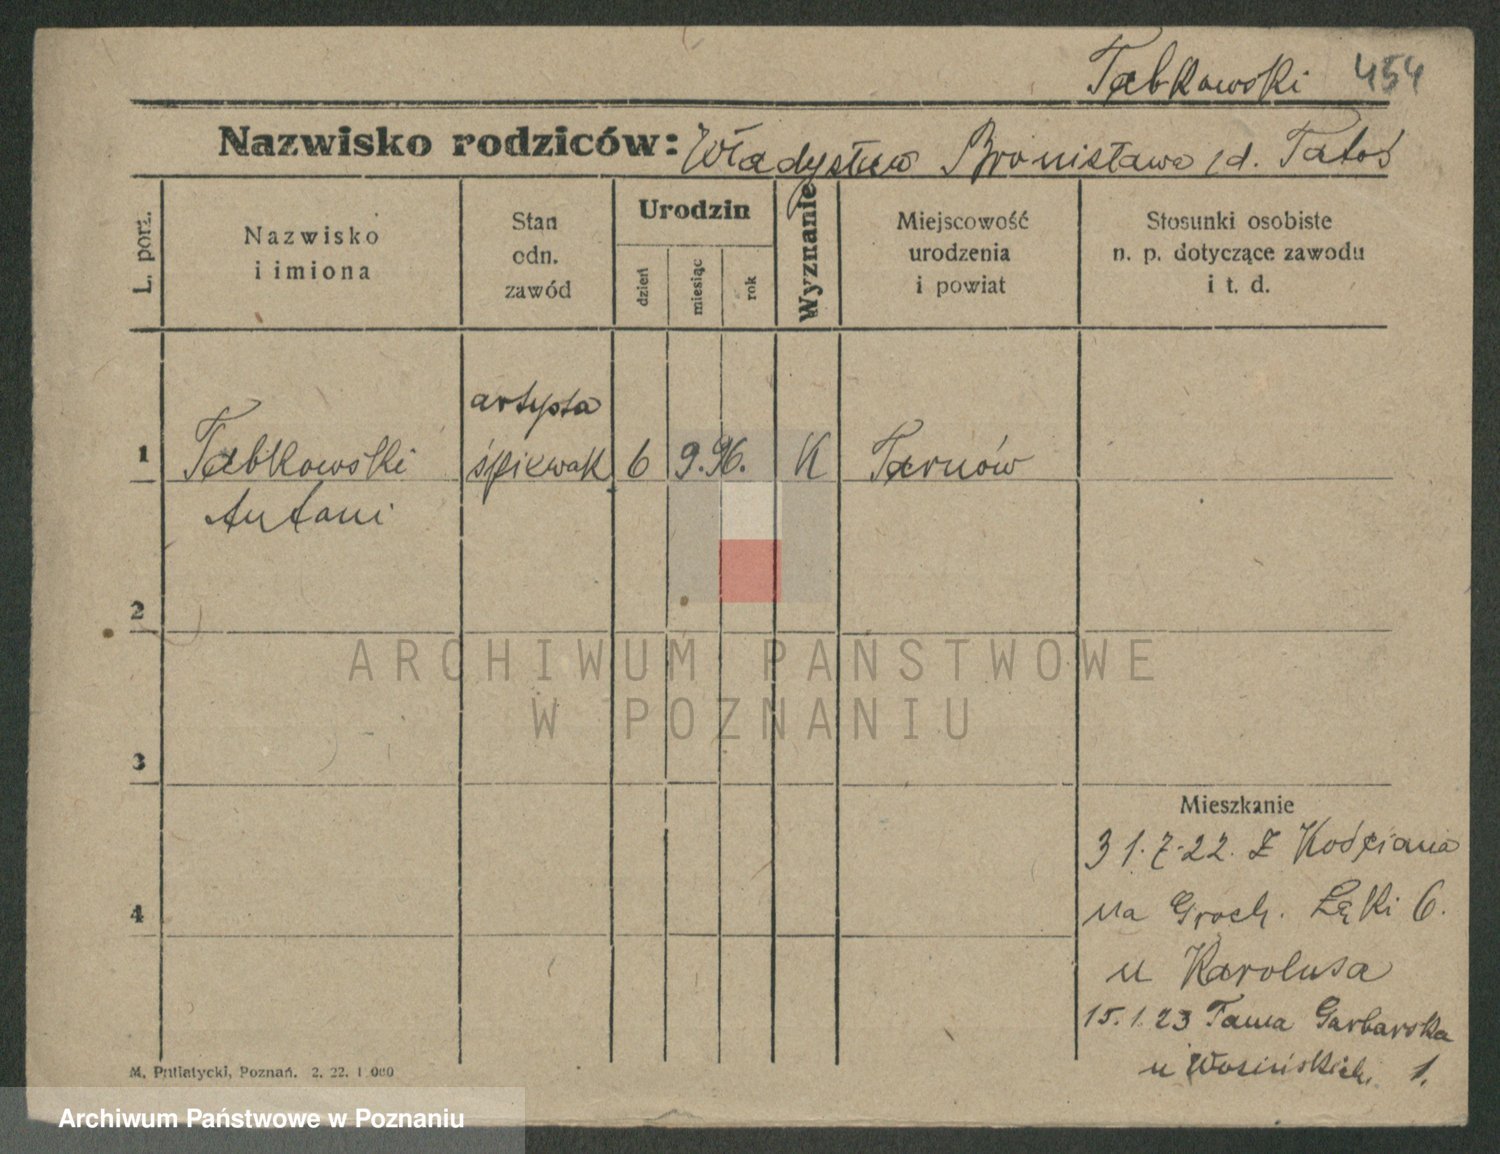 Tabkowski 454
Nazwisko rodziców: Władysław Bronisława /d. Tatoś
L. porz.
Nazwisko
i imiona
Stan
odn.
zawód
Urodzin
dzień
miesiąc
rok
Wyznanie
Miejscowość
urodzenia
i powiat
Stosunki osobiste
n. p. dotyczące zawodu
i t. d.
artysta
1 Tabkowski śpiewak 6 9. 96. K Tarnów
Antoni
2
ARCHIWUM PAŃSTWOWE
W POZNANIU
3
Mieszkanie
31.7.22. Z Kościana
4
na Groch. Łąki 6.
u Karolusa
15.1.23 Tama Garbarska
u Wosińskich 1.
M. Putiatycki, Poznań. 2. 22. 1 000
Archiwum Państwowe w Poznaniu